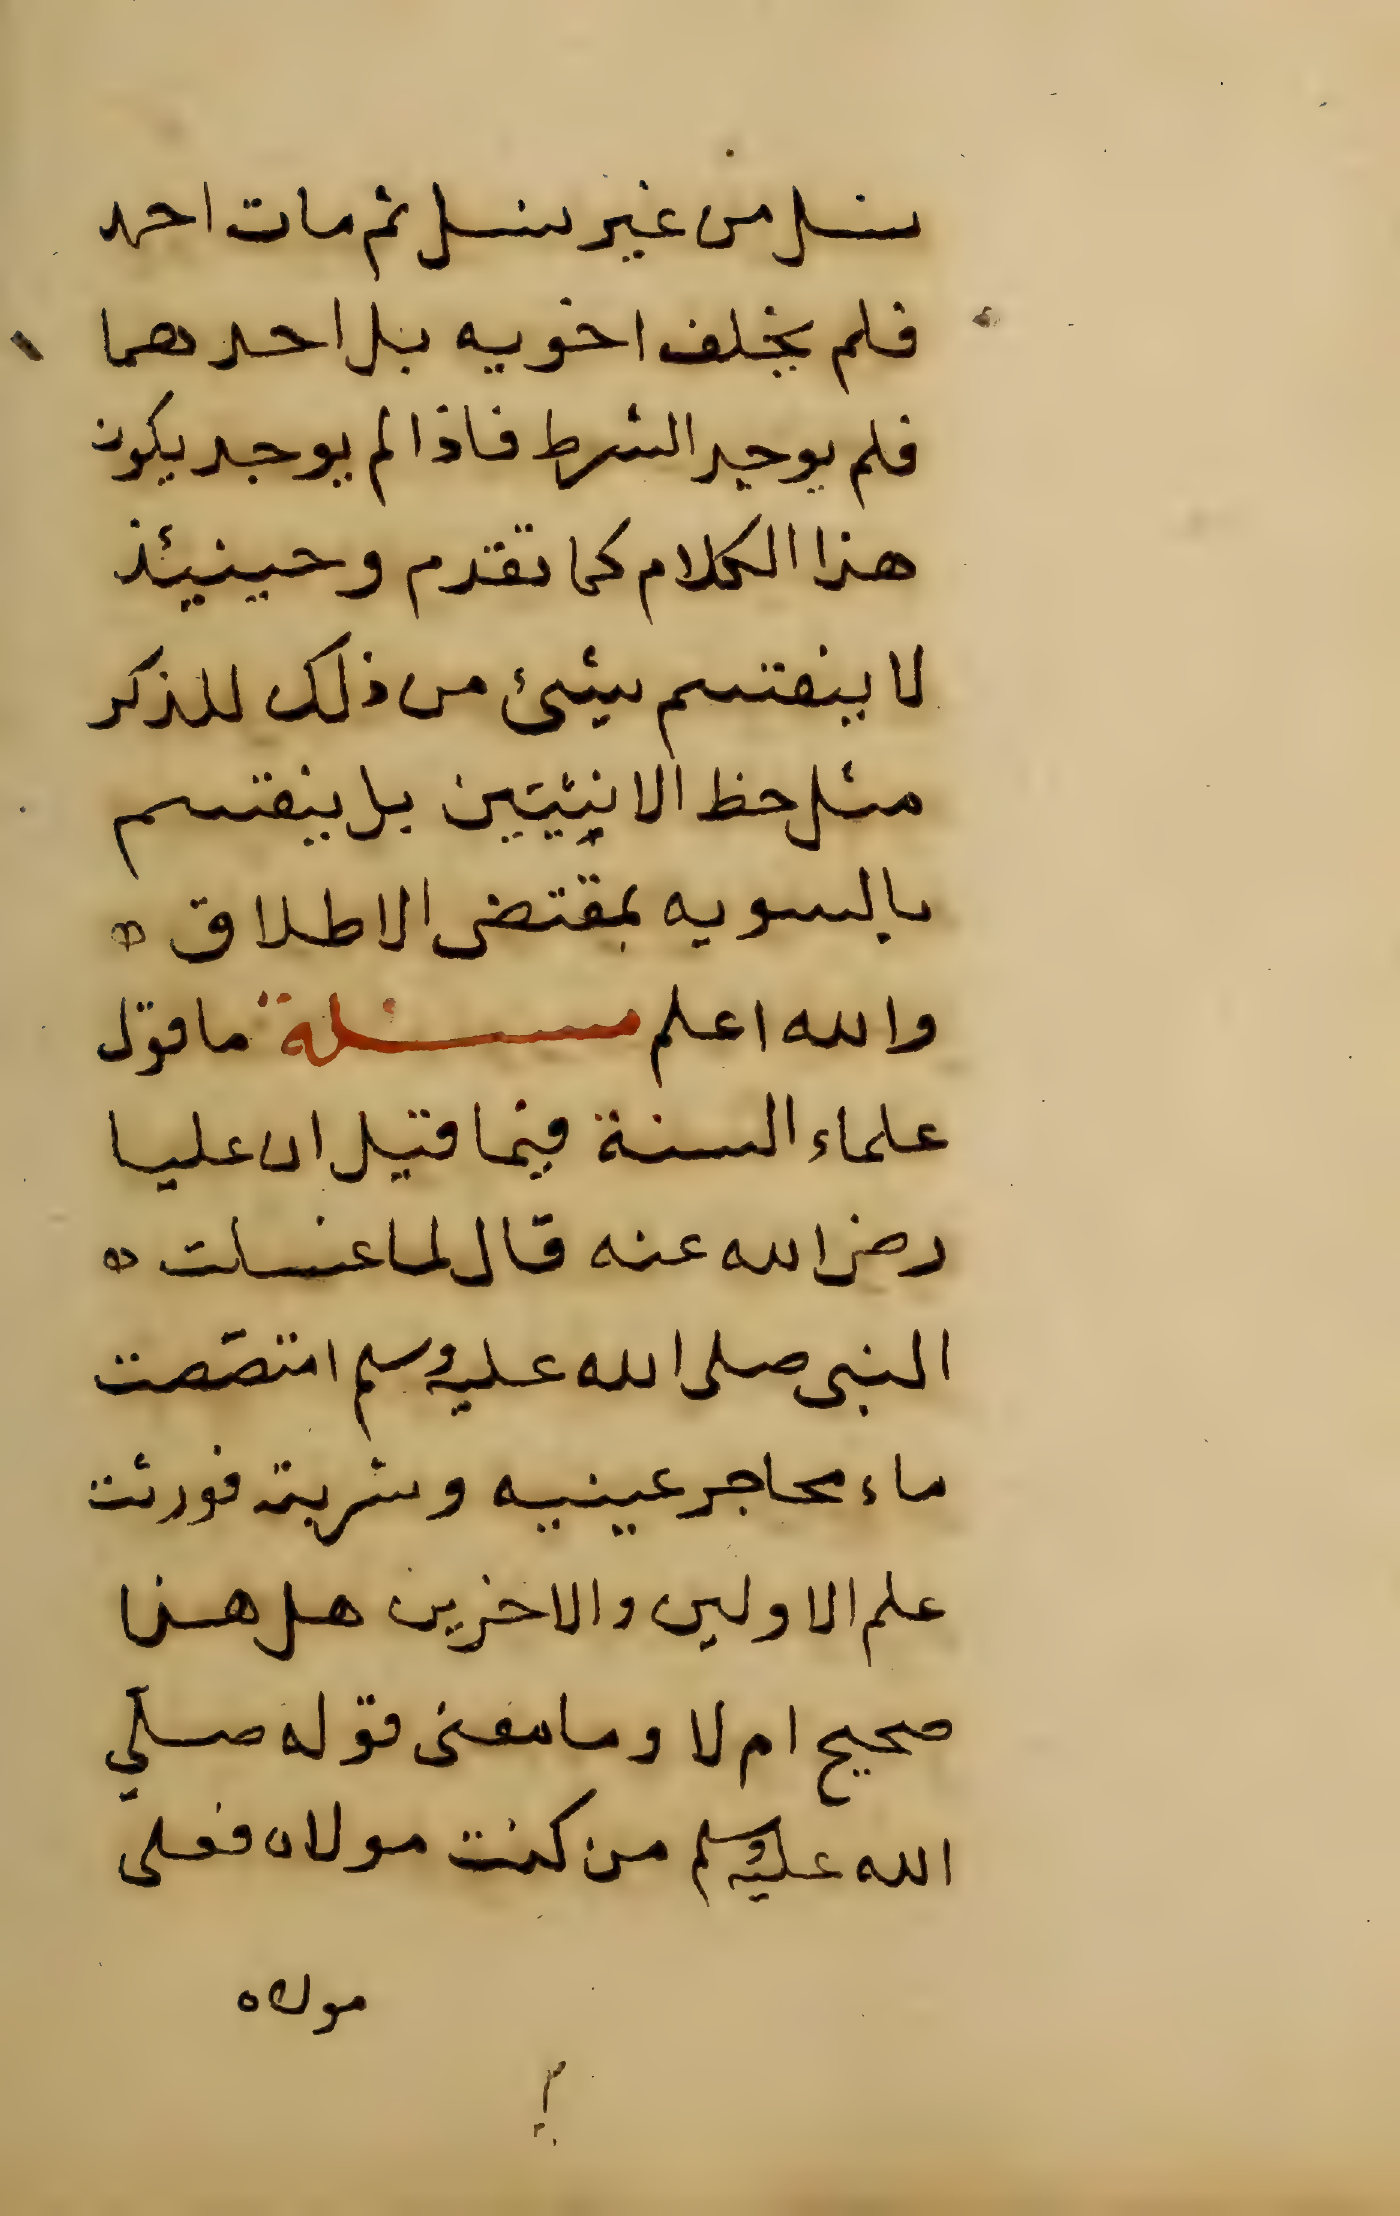 نسل من غير نسل ثم مات احمد
فلم يخلف اخويه بل احدهما
فلم يوجد الشرط فاذا لم يوجد يكون
هذا الكلام كما تقدم وحينيئذ
لا ينقسم شئ من ذلك للذكر
مثل حظ الانثيين بل ينقسم
بالسويه بمقتضى الاطلاق
والله اعلم مسئلة ما قول
علماء السنة فيما قيل ان عليا
رضى الله عنه قال لما غسلت
النبى صلى الله عليه وسلم امتصّصت
ماء محاجر عينيه وشربته فورثت
علم الاولين والاخرين هل هذا
صحيح ام لا وما معنى قوله صلّي
الله عليه وسلم من كنت مولاه فعلى
مولاه